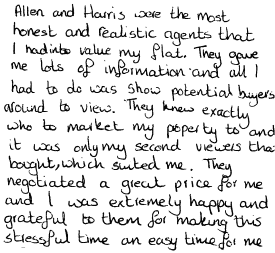 Allen and Harris were the most
honest and realistic agents that
I had into value my flat. They gave
me lots of information and all I
had to do was show potential buyers
around to view. They knew exactly
who to market my poperty to and
it was only my second viewers that
bought, which suited me. They
negotiated a great price for me
and I was extremely happy and
grateful to them for making this
stressful time an easy time for me